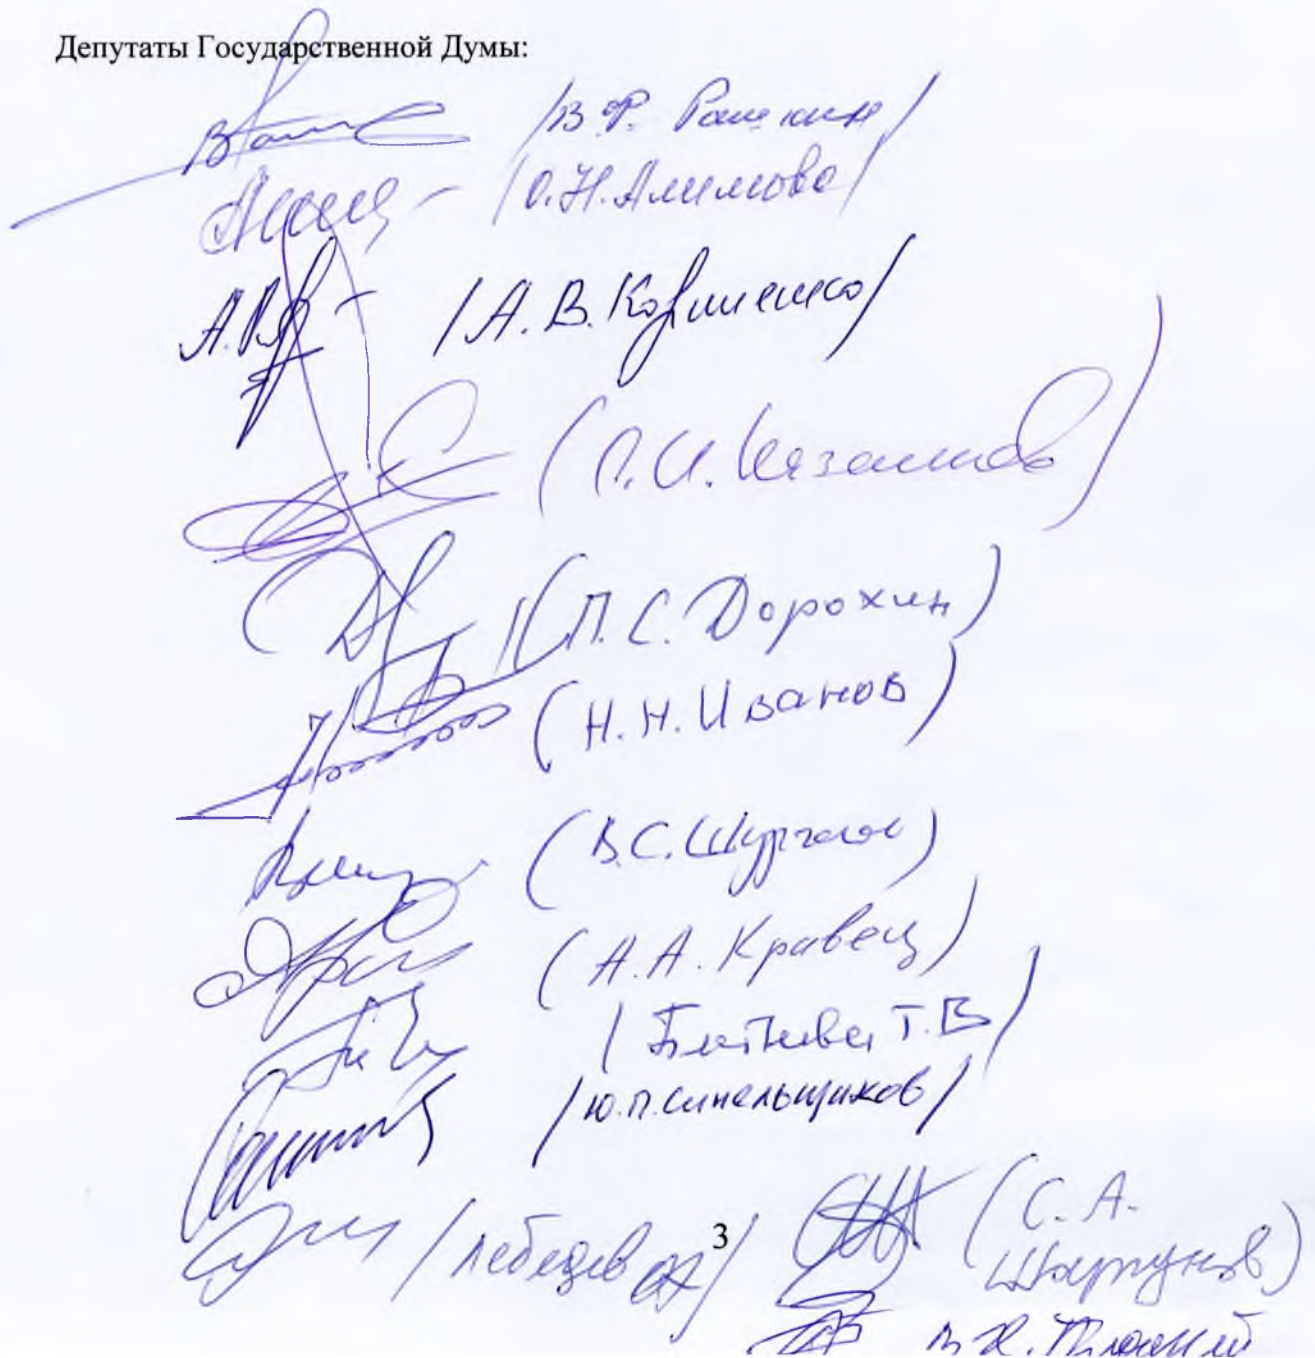 Депутаты Государственной Думы:
/В.Ф. Рашкин/
/О.Н. Алимова/
/А.В. Корниенко/
(П.С. Дорохин)
(Н.Н. Иванов)
(В.С. Шурчанов)
(А.А. Кравец)
/Плетнева Т.В/
/Ю.П. Синельщиков/
/Лебедев
(С.А. Шаргунов)
3